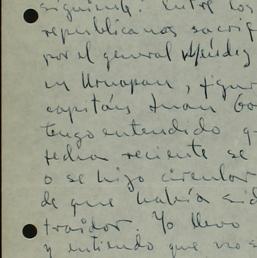 siguiente: Entre los
republicanos sacrif
por el general Méndez
en Uruapan, figur
capitán Juan Go
tengo entendido q
fecha reciente se
o se hizo circular
de que había sid
traidor. Yo llevo
y entiendo que no s